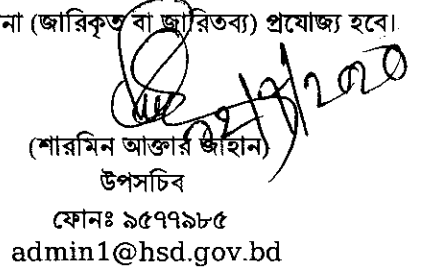 না (জারিকৃত বা জারিতব্য) প্রযোজ্য হবে।
(শারমিন আক্তার জাহান)
উপসচিব
ফোনঃ ৯৫৭৭৯৮৫
admin1@hsd.gov.bd